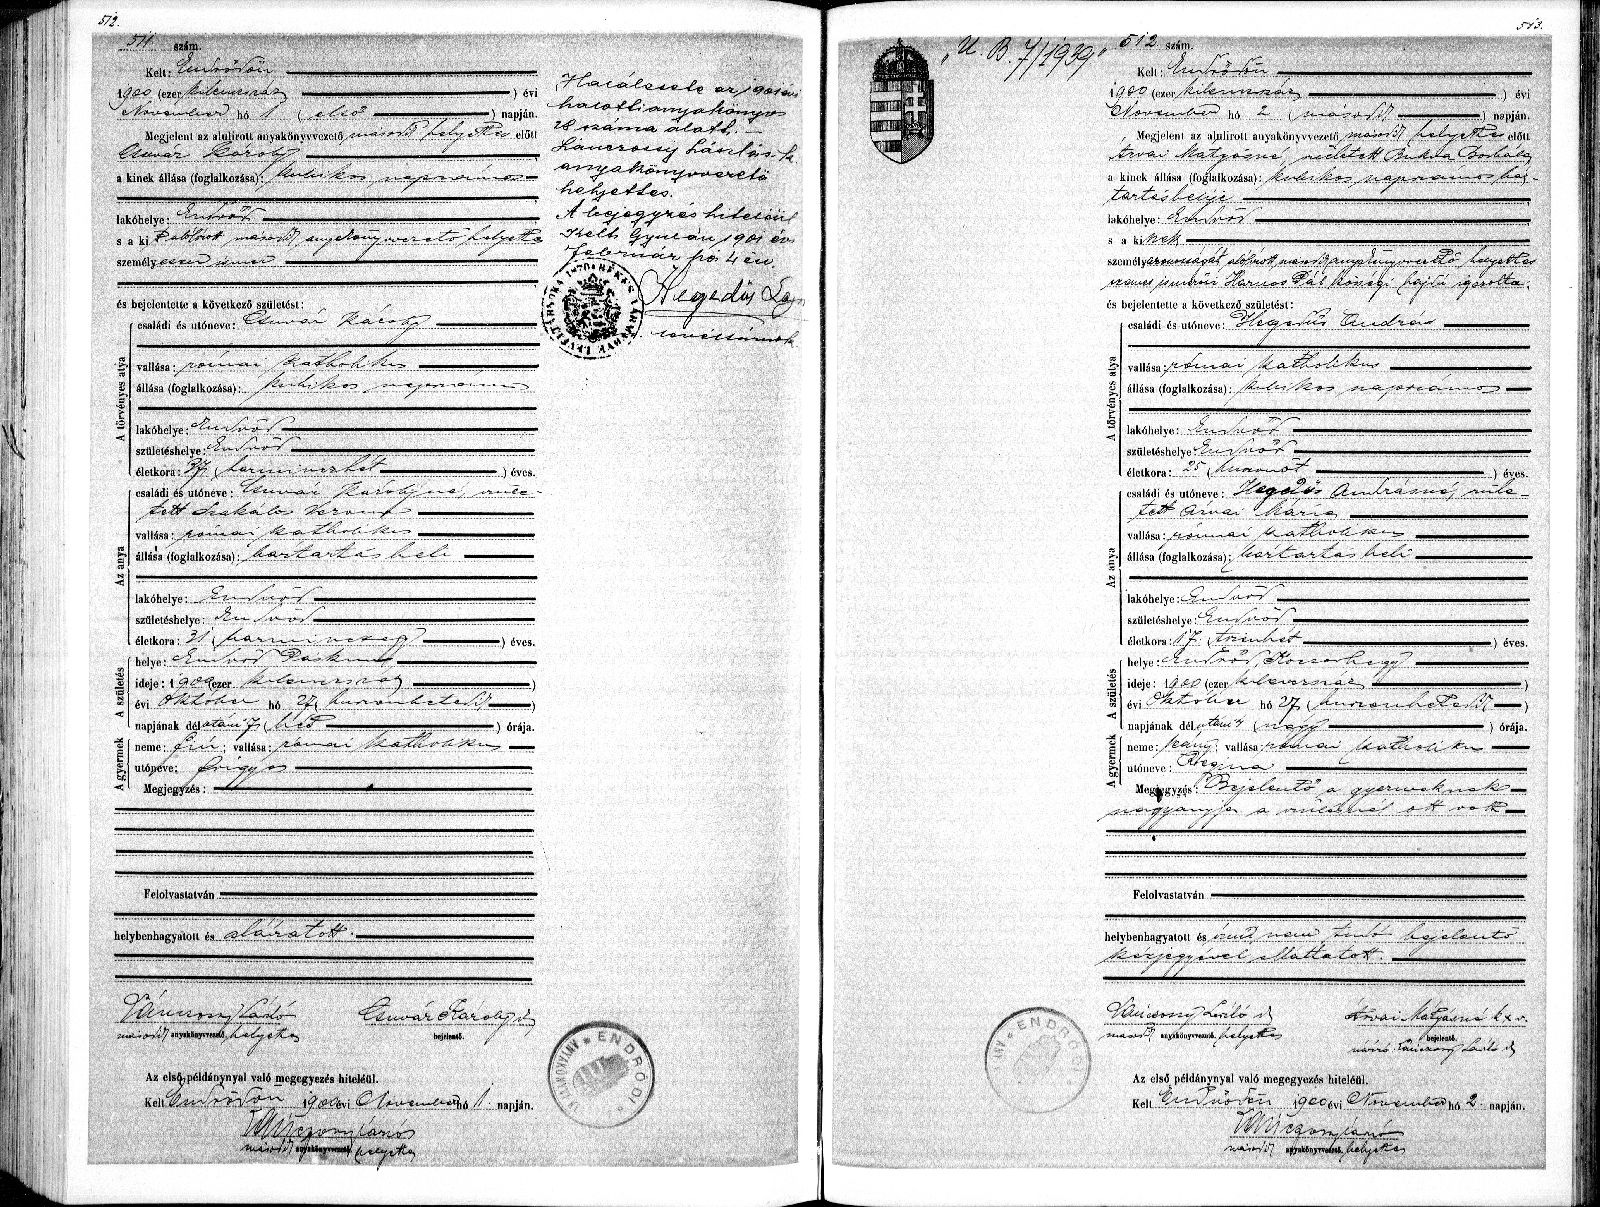 512.
511 szám.
Kelt: Endrődön
1900 (ezer kilencszáz) évi
November hó 1 (első) napján.
Megjelent az alulirott anyakönyvvezető, másod helyettes előtt
Csuvár Károly
a kinek állása (foglalkozása): kubikos napszámos
lakóhelye: Endrőd
s a ki alólirott másod anyakönyvvezető helyettes
személyesen ismer
és bejelentette a következő születést:
A törvényes atya
családi és utóneve: Csuvár Károly
vallása: római katholikus
állása (foglalkozása): kubikos napszámos
lakóhelye: Endrőd
születéshelye: Endrőd
életkora: 37 (harminczhét) éves.
Az anya
családi és utóneve: Csuvár Károlyné, szüle-
tett Szakálos Verona
vallása: római katholikus
állása (foglalkozása): háztartásbeli
lakóhelye: Endrőd
születéshelye: Endrőd
életkora: 31 (harminczegy) éves.
A születés
helye: Endrőd,
ideje: 1900 (ezer kilenczszáz)
évi Október hó 27 (huszonhetedik)
napjának délután 7 (hét) órája.
A gyermek
neme: fiú; vallása: római katholikus
utóneve: Frigyes
Megjegyzés:
Felolvastatván
helybenhagyatott és aláíratott.
Vánczony László Csuvár Károly
másod anyakönyvvezető. helyettes bejelentő.
Az első példánynyal való megegyezés hiteléül.
Kelt Endrődön 1900 évi November hó 1 napján.
Vánczony László
másod anyakönyvvezető. helyettes
Halálesete az 1901 évi
halotti anyakönyv
28 száma alatt. –
anyakönyvvezető
helyettes.
A bejegyzés hiteléül
Kelt Gyulán 1901 évi
Február hó 4 én.
Hegedűs
levéltárnok
BÉKÉS VÁRMEGYE LEVÉLTÁRNOKA 1876
ENDRŐDI ANYAKÖNYVI
513.
„U. B. 7/1939"
512 szám.
Kelt: Endrődön
1900 (ezer kilenczszáz) évi
November hó 2 (második) napján.
Megjelent az alulirott anyakönyvvezető, másod helyettes előtt
Árvai Mátyásné, született Borbála
a kinek állása (foglalkozása): kubikos napszámos ház-
tartásbelije
lakóhelye: Endrőd
s a kinek
személyazonosságát alólirott, másod anyakönyvvezető helyettes
személyesen ismerős Harnos Pál községi hajdú igazolta.
és bejelentette a következő születést:
A törvényes atya
családi és utóneve: Hegedűs András
vallása: római katholikus
állása (foglalkozása): kubikos napszámos
lakóhelye: Endrőd
születéshelye: Endrőd
életkora: 25 (huszonöt) éves.
Az anya
családi és utóneve: Hegedűs Andrásné, szüle-
tett Árvai Mária
vallása: római katholikus
állása (foglalkozása): háztartásbeli
lakóhelye: Endrőd
születéshelye: Endrőd
életkora: 17 (tizenhét) éves.
A születés
helye: Endrőd, Kocsorhegy
ideje: 1900 (ezer kilenczszáz)
évi Október hó 27 (huszonhetedik)
napjának délután 4 (négy) órája.
A gyermek
neme: leány; vallása: római katholikus
utóneve: Regina
Megjegyzés: Bejelentő a gyermeknek
nagyanyja a szülésnél ott volt
Felolvastatván
helybenhagyatott és írni nem tudó bejelentő
kézjegyével elláttatott.
Vánczony László Árvai Mátyásné k x v.
másod anyakönyvvezető. helyettes bejelentő.
névíró Vánczony László
Az első példánynyal való megegyezés hiteléül.
Kelt Endrődön 1900 évi November hó 2 napján.
Vánczony László
másod anyakönyvvezető. helyettes
ENDRŐDI